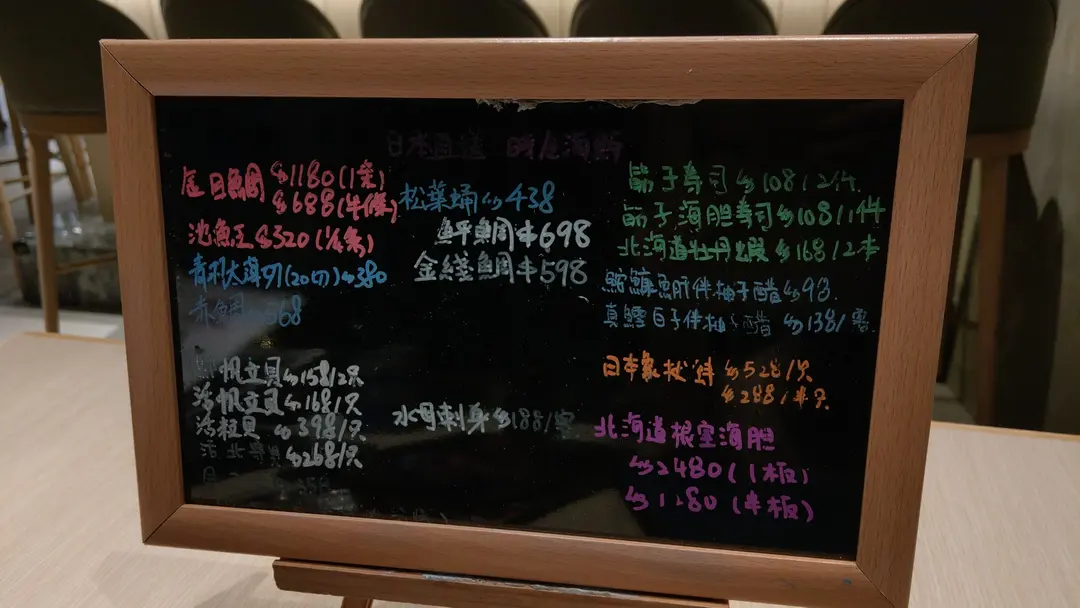 日本直送 時令海鮮
金目鯛 $1180(1条)
$688(半條)
池魚王 $320(1/4条)
青利太薄切(20切) $380
赤鯛 568
帆立貝 $158/2只
活帆立貝 $168/只
活粒貝 $398/只
活北寄貝 $268/只
松葉 $438
鮃鯛 $698
金綫鯛 $598
水母刺身 $188/客
筋子寿司 $108/2件
筋子海胆寿司 $108/1件
北海道牡丹蝦 $168/2本
鮟鱇魚肝伴柚子醋 $93
真鱈白子伴柚子醋 $138/客
日本氣拔蚌 $528/只
$288/半只
北海道根室海胆
$2480(1板)
$1280(半板)